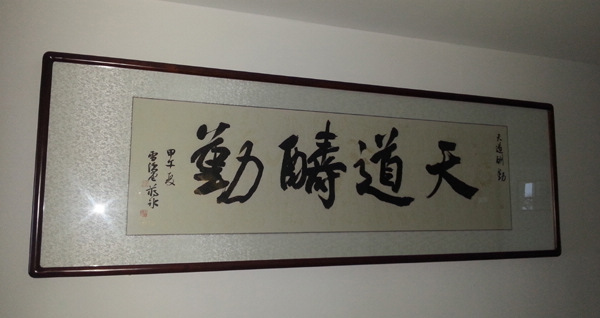 天道酬勤
天道醻勤
甲午夏